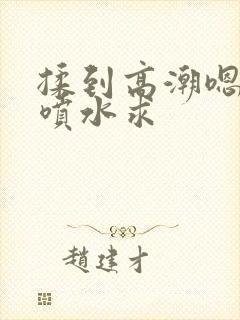 揉到高潮嗯
噴水求
趙建才